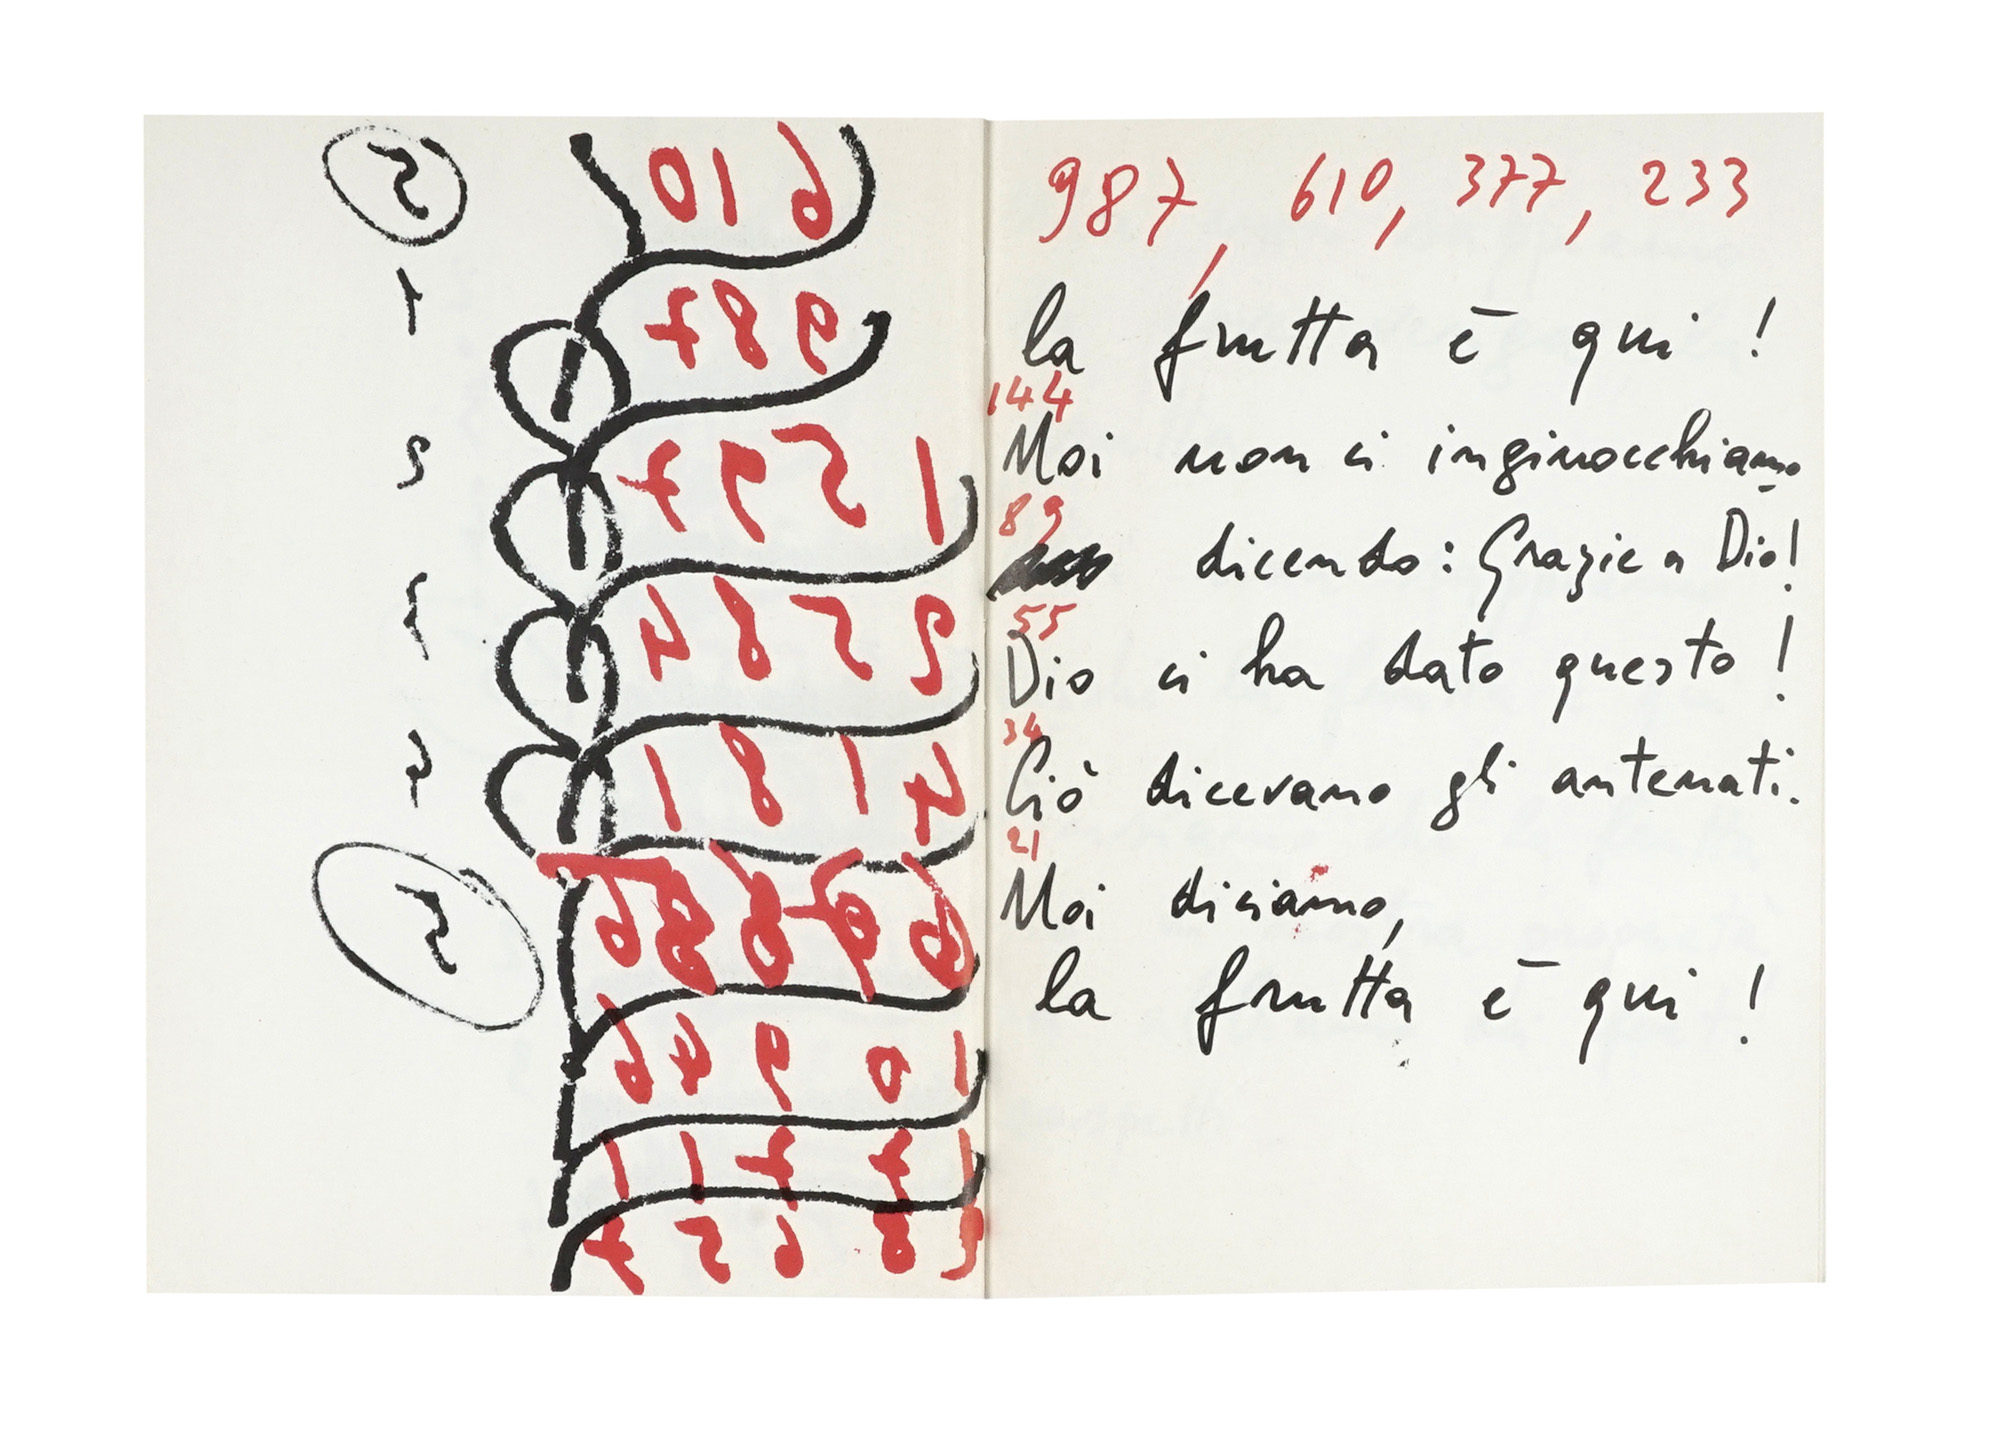 610
987
1597
2584
4181
10946
17711
1
2
987, 610, 377, 233
la frutta è qui !
144
Noi non ci inginocchiamo
89
dicendo : Grazie a Dio!
55
Dio ci ha dato questo !
34
Ciò dicevano gli antenati.
21
Noi diciamo,
la frutta è qui !